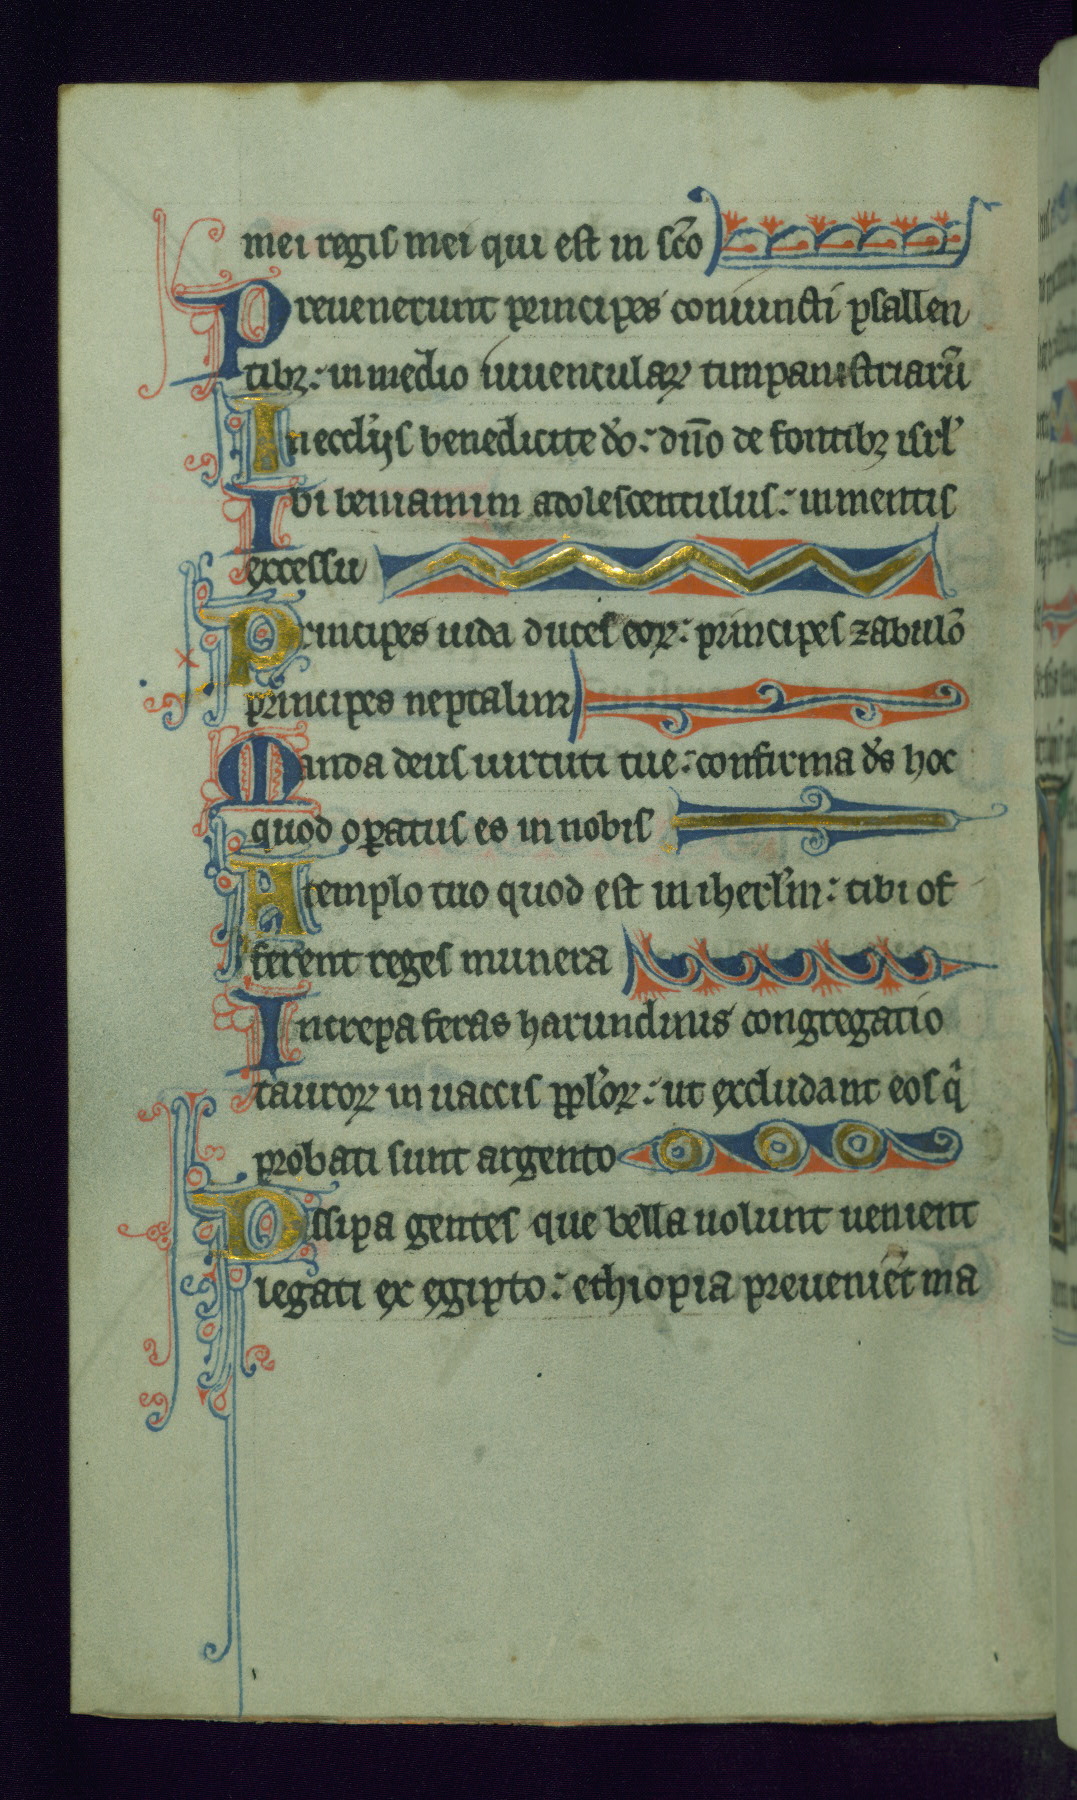 mei regis mei qui est in sc̄o
Preuenerunt principes coniuncti psallen
tibꝫ: in medio iuuencularꝝ timpanistriarū
In eccl'ijs benedicite d'o: dn̄o de fontibꝫ isrl'
Ibi beniamin adolescentulus: in mentis
excessu
Principes iuda duces eoꝝ: principes zabulō
principes neptalim
Manda deus uirtuti tue: confirma d's hoc
quod oꝑatus es in nobis
A templo tuo quod est in iherl'm: tibi of
ferent reges munera
Increpa feras harundinis congregatio
tauroꝝ in uaccis ppl'oꝝ: ut excludant eos q̂
probati sunt argento
Dissipa gentes que bella uolunt uenient
legati ex egipto: ethiopia preueniēt ma